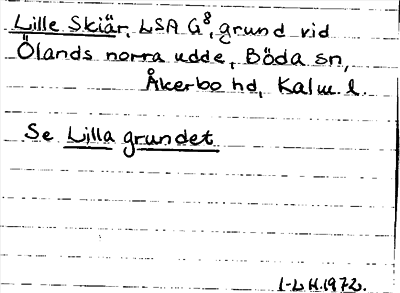 Lille Skiär, LSA G8, grund vid
Ölands norra udde, Böda sn,
Åkerbo hd, Kalm. l.
Se Lilla grundet
I-L H. 1972.